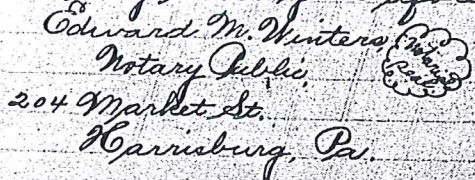 Edward M. Winters
Notary Public,
204 Market St.
Harrisburg, Pa.